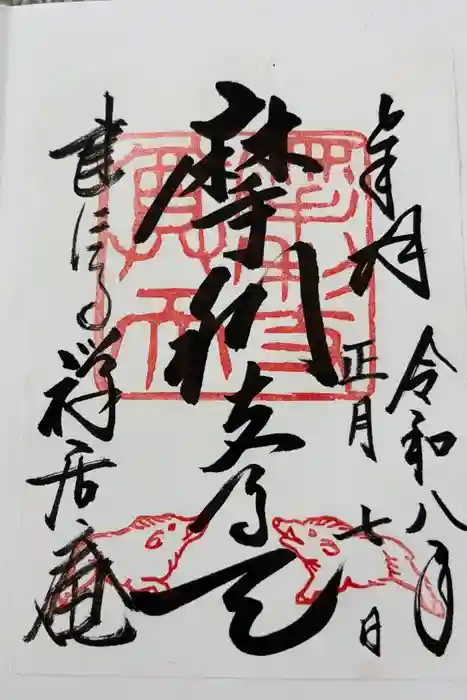 奉拝
令和八年
正月七日
摩利支尊天
建仁寺禅居庵